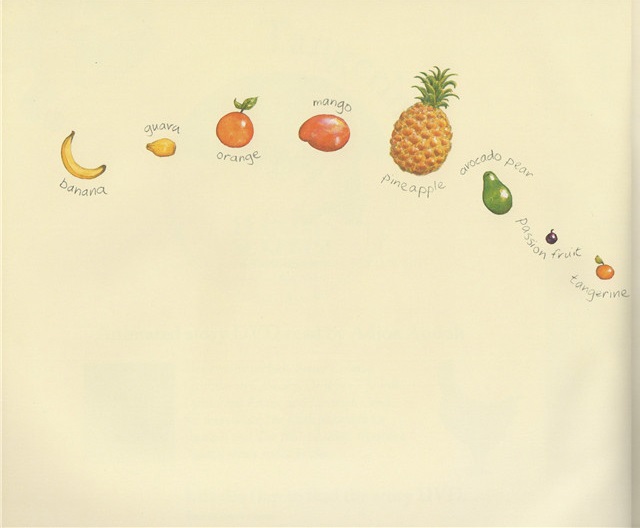 banana
guava
orange
mango
pineapple
avocado pear
passion fruit
tangerine